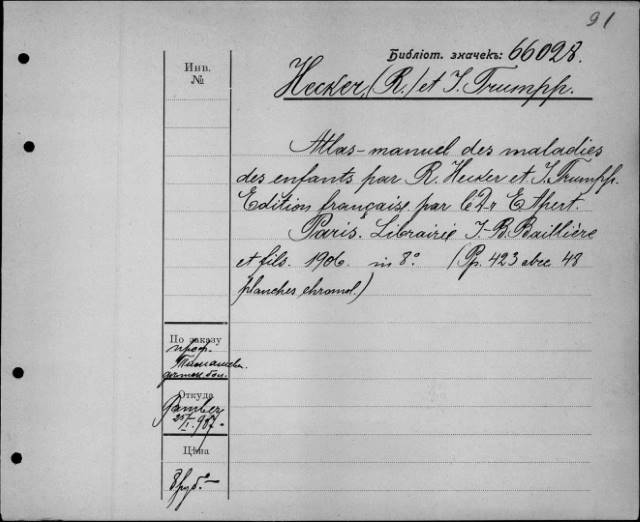 91
Библiот. значекъ: 66028.
Инв.
№
Hecker, (R.) et J. Trumpp.
Atlas-manuel des maladies
des enfants par R. Hecker et J. Trumpp.
Edition française par le Dr E. Apert.
Paris. Librairie J-B. Baillière
et fils. 1906. in 8º. (Pp. 423 avec 48
planches chromol.)
По заказу
проф.
Откуда
25/I 907.
Цѣна
8 руб. -